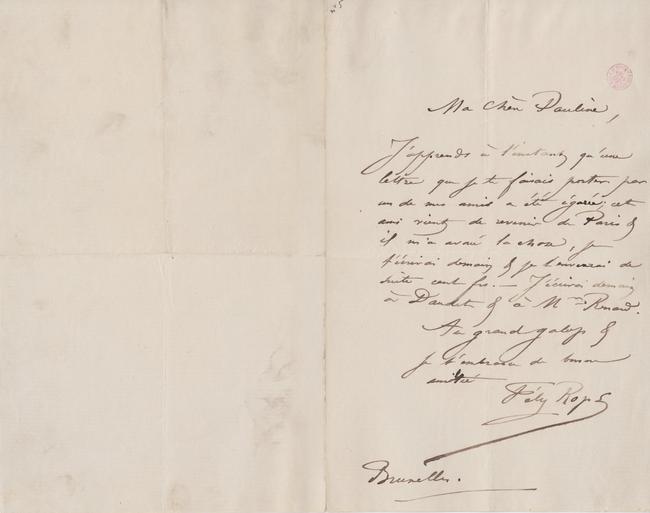 n°5
Ma chère Pauline,
J'apprends à l'instant qu'une
lettre que je te faisais porter par
un de mes amis a été égarée; cet
ami vient de revenir de Paris &
il m'a avoué la chose, je
t'écrirai demain & je t'enverrai de
suite cent frs. — J'écrirai demain
à Dandoy & à Mme Renard.
Au grand galop &
je t'embrasse de bonne
amitié
Fély Rops
Bruxelles.